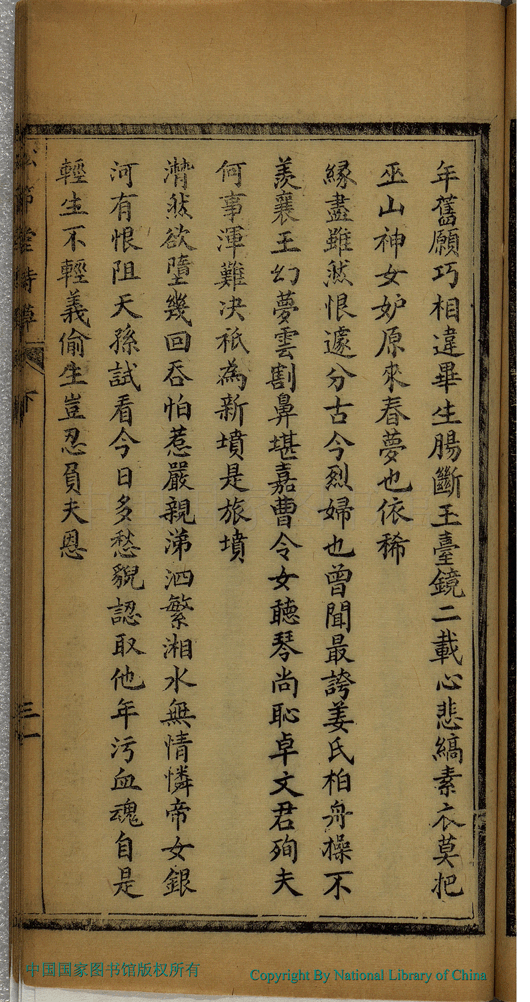 年舊願巧相違畢生腸斷玉臺鏡二載心悲縞素衣莫把
巫山神女妒原來春夢也依稀
緣盡雖然恨遽分古今烈婦也曾聞最誇姜氏柏舟操不
羨襄王幻夢雲割鼻堪嘉曹令女聽琴尚恥卓文君殉夫
何事渾難决祇為新墳是旅墳
潸然欲墮幾回吞怕惹嚴親涕泗繁湘水無情憐帝女銀
河有恨阻天孫試看今日多愁貌認取他年污血魂自是
輕生不輕義偷生豈忍負夫恩
節堂詩
下
三一
中国国家图书馆版权所有
Copyright By National Library of China